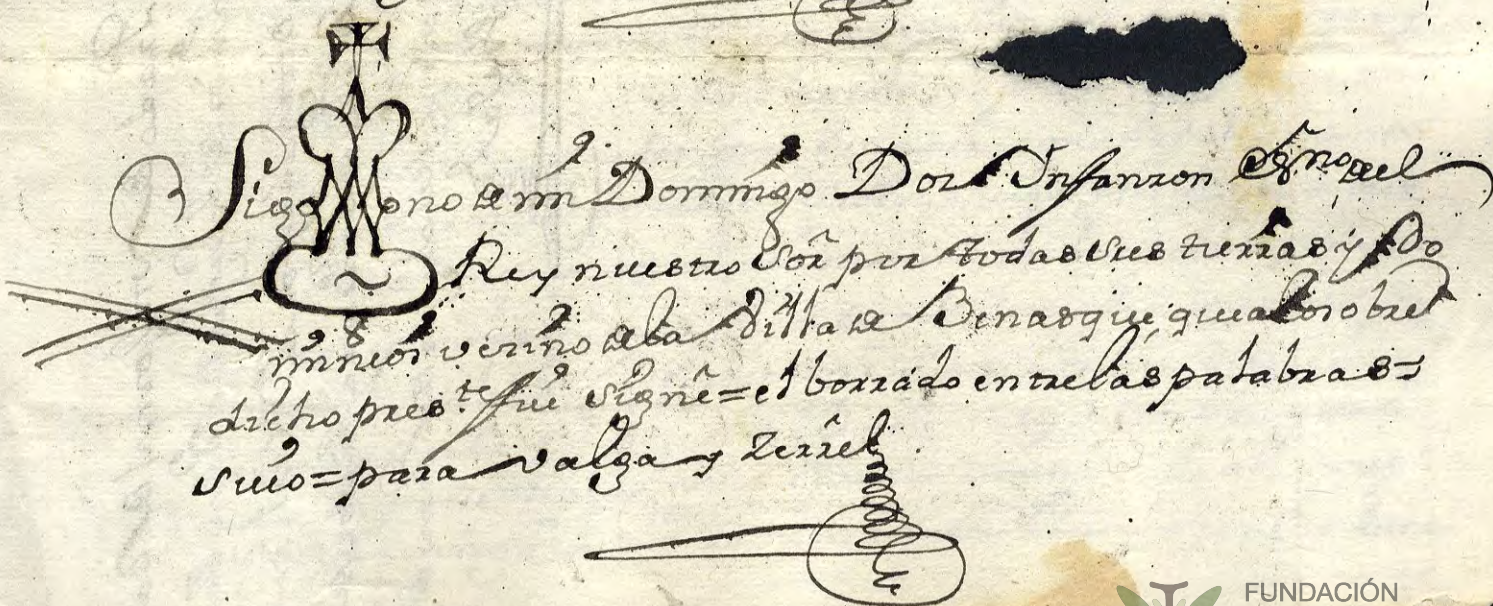 Sig no de mi Domingo Dor Infanzon Esno del
Rey nuestro Sor por todas sus tierras y Do
minios vezino de la Villa de Benasque que a lo sobre
dicho preste fui signe = el borrado entre las palabras =
suio = para valga y zerre
FUNDACIÓN